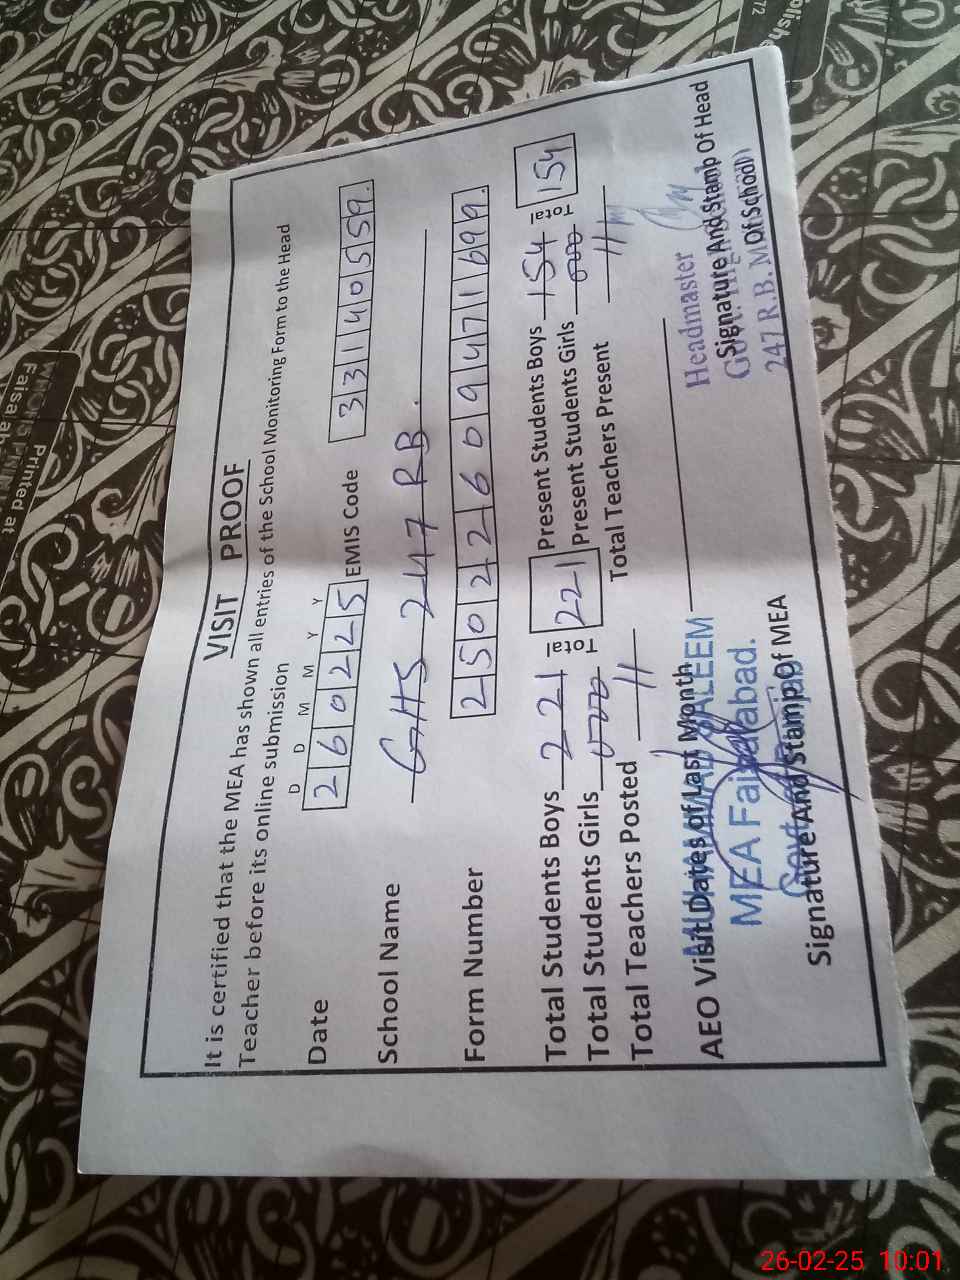 VISIT PROOF
It is certified that the MEA has shown all entries of the School Monitoring Form to the Head
Teacher before its online submission
D D M M Y Y
Date 260225 EMIS Code 33140559.
School Name GHS 247 RB.
Form Number 25022609471699.
Total Students Boys 221 Total 221 Present Students Boys 154 Total 154
Total Students Girls 000 Present Students Girls 000
Total Teachers Posted 11 Total Teachers Present 11
AEO Visit Dates of Last Month
MUHAMMAD SALEEM
MEA Faisalabad.
Signature And Stamp Of MEA
Headmaster
Signature And Stamp Of Head
Of School
247 R.B.
Printed at
Faisalab
Polishe
72
26-02-25 10:01